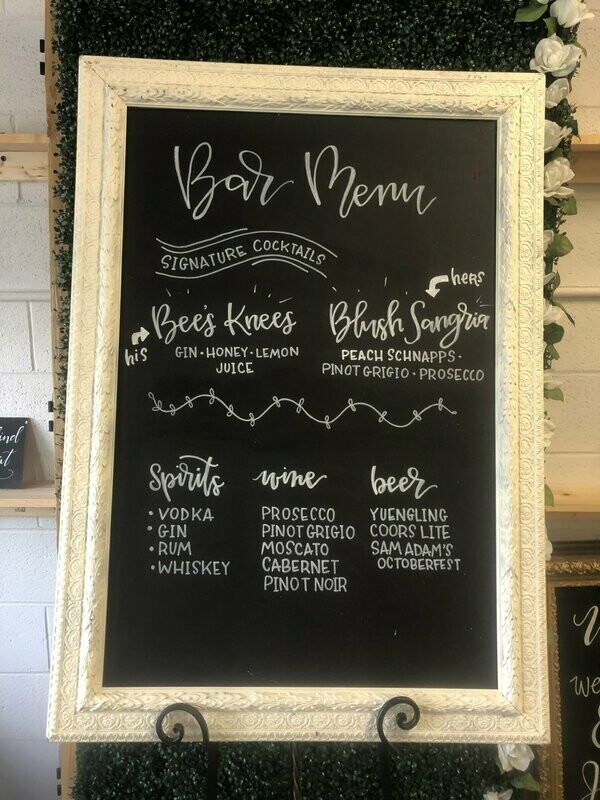 Bar Menu
SIGNATURE COCKTAILS
his
Bee's Knees
GIN · HONEY · LEMON
JUICE
hers
Blush Sangria
PEACH SCHNAPPS ·
PINOT GRIGIO · PROSECCO
spirits
· VODKA
· GIN
· RUM
· WHISKEY
wine
PROSECCO
PINOT GRIGIO
MOSCATO
CABERNET
PINOT NOIR
beer
YUENGLING
COORS LITE
SAM ADAM'S
OCTOBERFEST